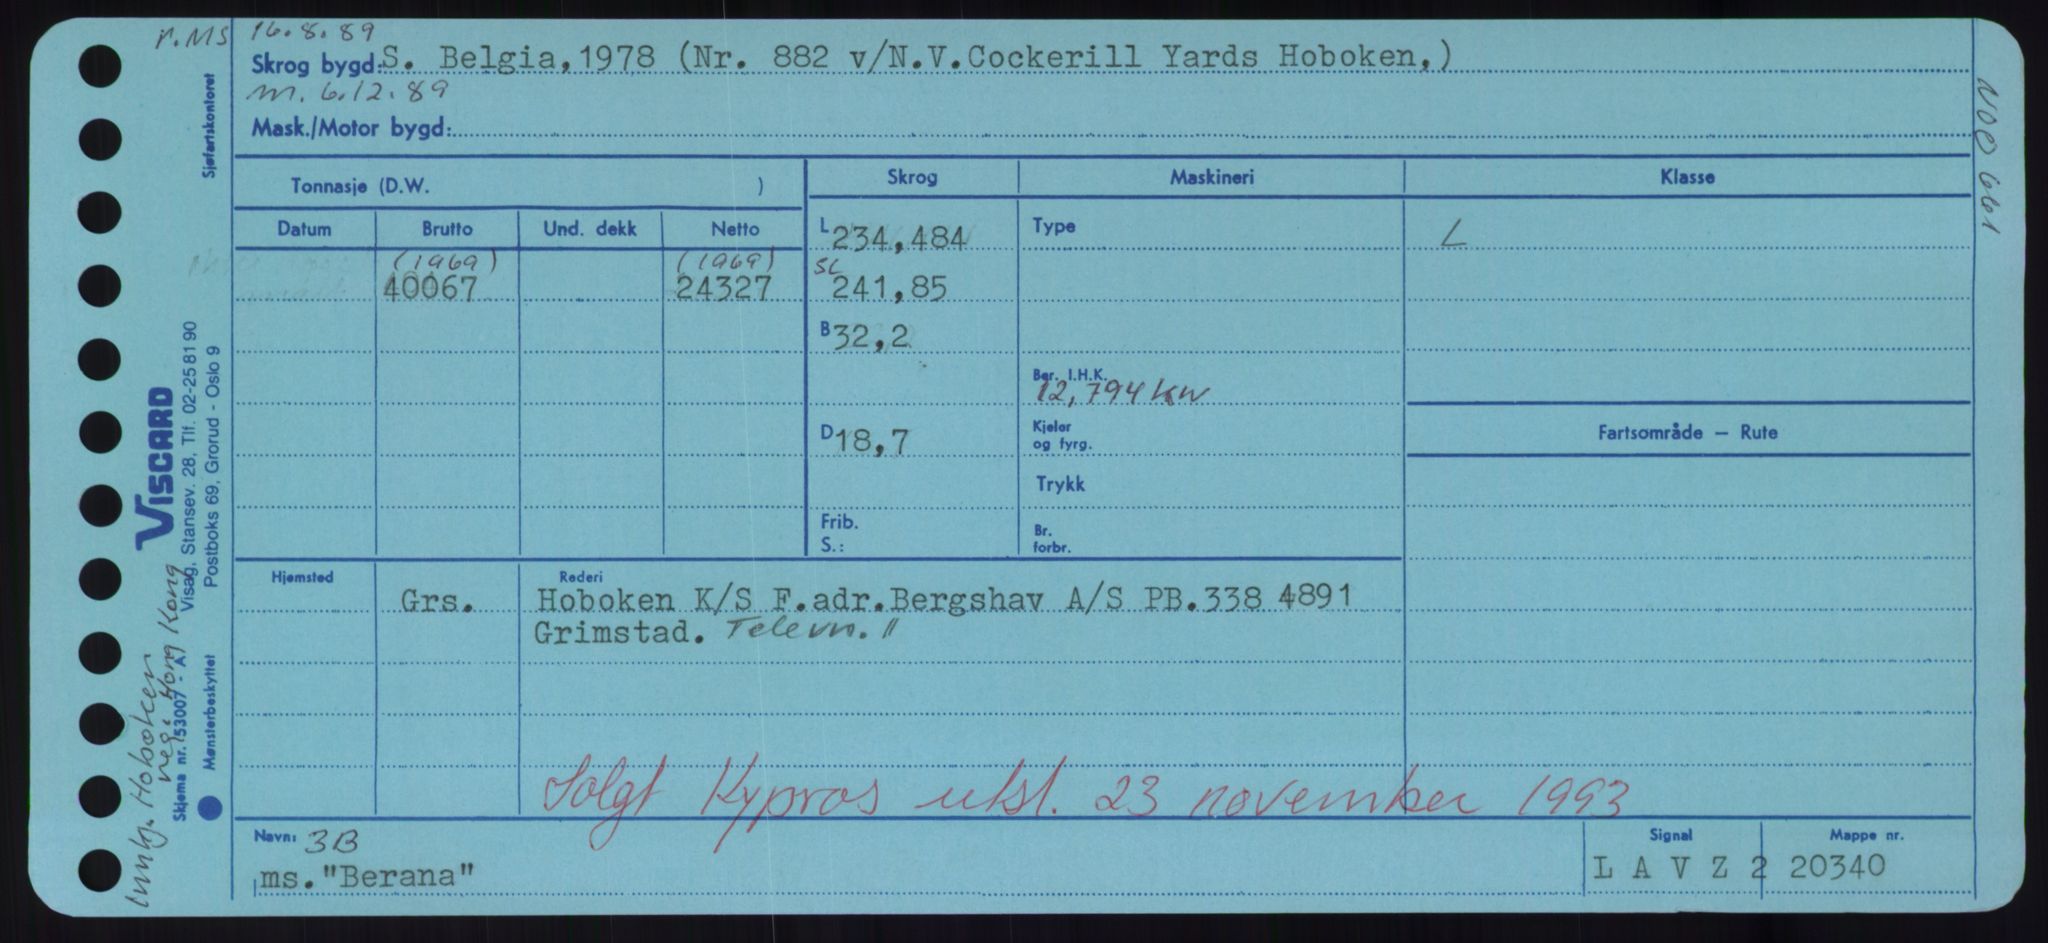 r.MS 16.8.89
Skrog bygd: S. Belgia, 1978 (Nr. 882 v/N.V.Cockerill Yards Hoboken,)
m. 6.12.89
Mask./Motor bygd:
Tonnasje (D.W. )
Skrog
Maskineri
Klasse
Datum
Brutto
Und. dekk
Netto
L 234,484
Type
L
(1969)
(1969)
40067
24327
SL 241,85
B 32,2
Ber. I.H.K.
12,794 KW
D 18,7
Kjeler
og fyrg.
Fartsområde — Rute
Trykk
Frib.
S.:
Br.
forbr.
Hjemsted
Rederi
Grs.
Hoboken K/S F.adr.Bergshav A/S PB.338 4891
Grimstad. Televn. 11
Solgt Kypros utst. 23 november 1993
Navn: 3B
ms."Berana"
Signal
L A V Z 2
Mappe nr.
20340
Sjøfartskontoret
VISCARD
Visag, Stansev. 28, Tlf. 02-25 81 90
Postboks 69, Grorud - Oslo 9
Skjema nr. 153007 - A
Mønsterbeskyttet
Innkj. Hoboken
reg. Hong Kong